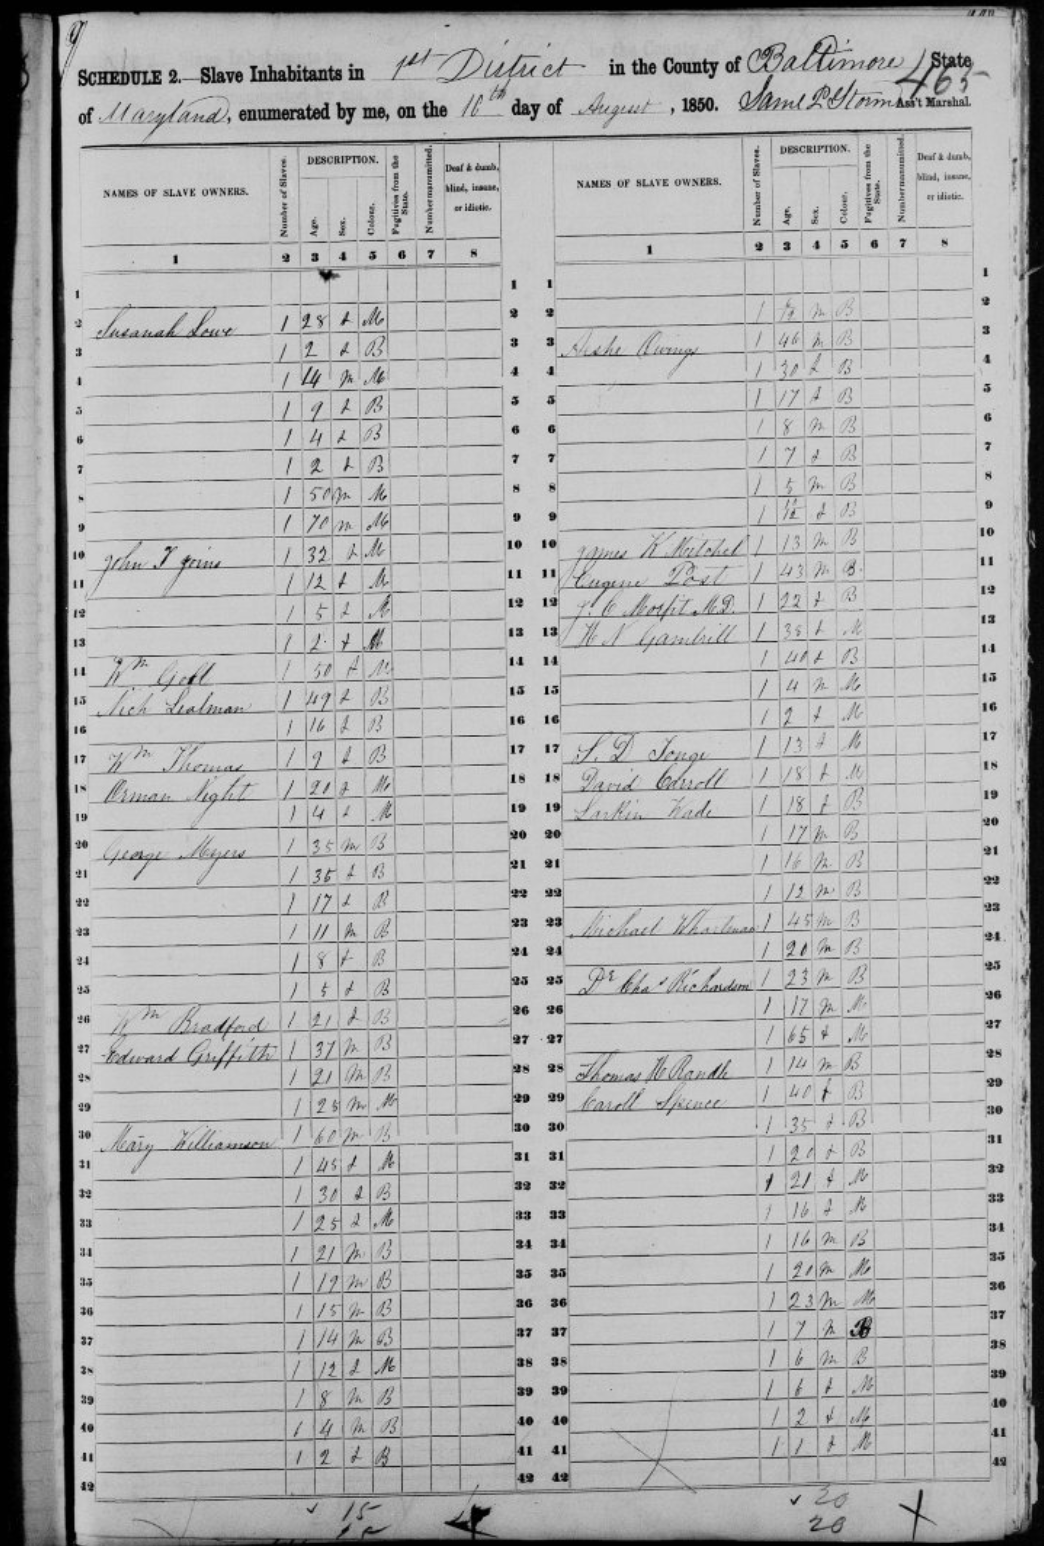 9
SCHEDULE 2.—Slave Inhabitants in 1st District in the County of Baltimore State
465
of Maryland, enumerated by me, on the 16th day of August, 1850. Saml P Storm Ass't Marshal.
NAMES OF SLAVE OWNERS. Number of Slaves. DESCRIPTION. Age. Sex. Colour. Fugitives from the State. Number manumitted. Deaf & dumb, blind, insane, or idiotic.
1 2 3 4 5 6 7 8
1 1
2 Susanah Lowe 1 28 f M 2
3 1 2 f B 3
4 1 14 m M 4
5 1 9 f B 5
6 1 4 f B 6
7 1 2 f B 7
8 1 50 m M 8
9 1 70 m M 9
10 John T 1 32 f M 10
11 1 12 f M 11
12 1 5 f M 12
13 1 2 f M 13
14 Wm Gott 1 50 f M 14
15 Nich Lealman 1 49 f B 15
16 1 16 f B 16
17 Wm Thomas 1 9 f B 17
18 Orman Night 1 20 f M 18
19 1 4 f M 19
20 George Myers 1 35 m B 20
21 1 35 f B 21
22 1 17 f B 22
23 1 11 m B 23
24 1 8 f B 24
25 1 5 f B 25
26 Wm Bradford 1 21 f B 26
27 Edward Griffith 1 37 m B 27
28 1 21 m B 28
29 1 25 m M 29
30 Mary Williamson 1 60 m B 30
31 1 45 f M 31
32 1 30 f B 32
33 1 25 f M 33
34 1 21 m B 34
35 1 19 m B 35
36 1 15 m B 36
37 1 14 m B 37
38 1 12 f M 38
39 1 8 m B 39
40 1 4 m B 40
41 1 2 f B 41
42 42
15
NAMES OF SLAVE OWNERS. Number of Slaves. DESCRIPTION. Age. Sex. Colour. Fugitives from the State. Number manumitted. Deaf & dumb, blind, insane, or idiotic.
1 2 3 4 5 6 7 8
1 1
2 1 m B 2
3 Owings 1 46 m B 3
4 1 30 f B 4
5 1 17 f B 5
6 1 8 m B 6
7 1 7 f B 7
8 1 5 m B 8
9 1 f B 9
10 James K Mitchel 1 13 m B 10
11 Eugene Post 1 43 m B 11
12 J. C Morfit M.D. 1 22 f B 12
13 H N Gambrill 1 35 f M 13
14 1 40 f B 14
15 1 4 m M 15
16 1 2 f M 16
17 S. D Tonge 1 13 f M 17
18 David Corroll 1 18 f M 18
19 Larkin Wade 1 18 f B 19
20 1 17 m B 20
21 1 16 m B 21
22 1 12 m B 22
23 Michael 1 45 m B 23
24 1 20 m B 24
25 Dr Chas Richardson 1 23 m B 25
26 1 17 m M 26
27 1 65 f M 27
28 Thomas H Randle 1 14 m B 28
29 Caroll Spence 1 40 f B 29
30 1 35 f B 30
31 1 20 f B 31
32 1 21 f M 32
33 1 16 f M 33
34 1 16 m B 34
35 1 20 m M 35
36 1 23 m M 36
37 1 7 m B 37
38 1 6 m B 38
39 1 6 f M 39
40 1 2 f M 40
41 1 1 f M 41
42 42
20
20